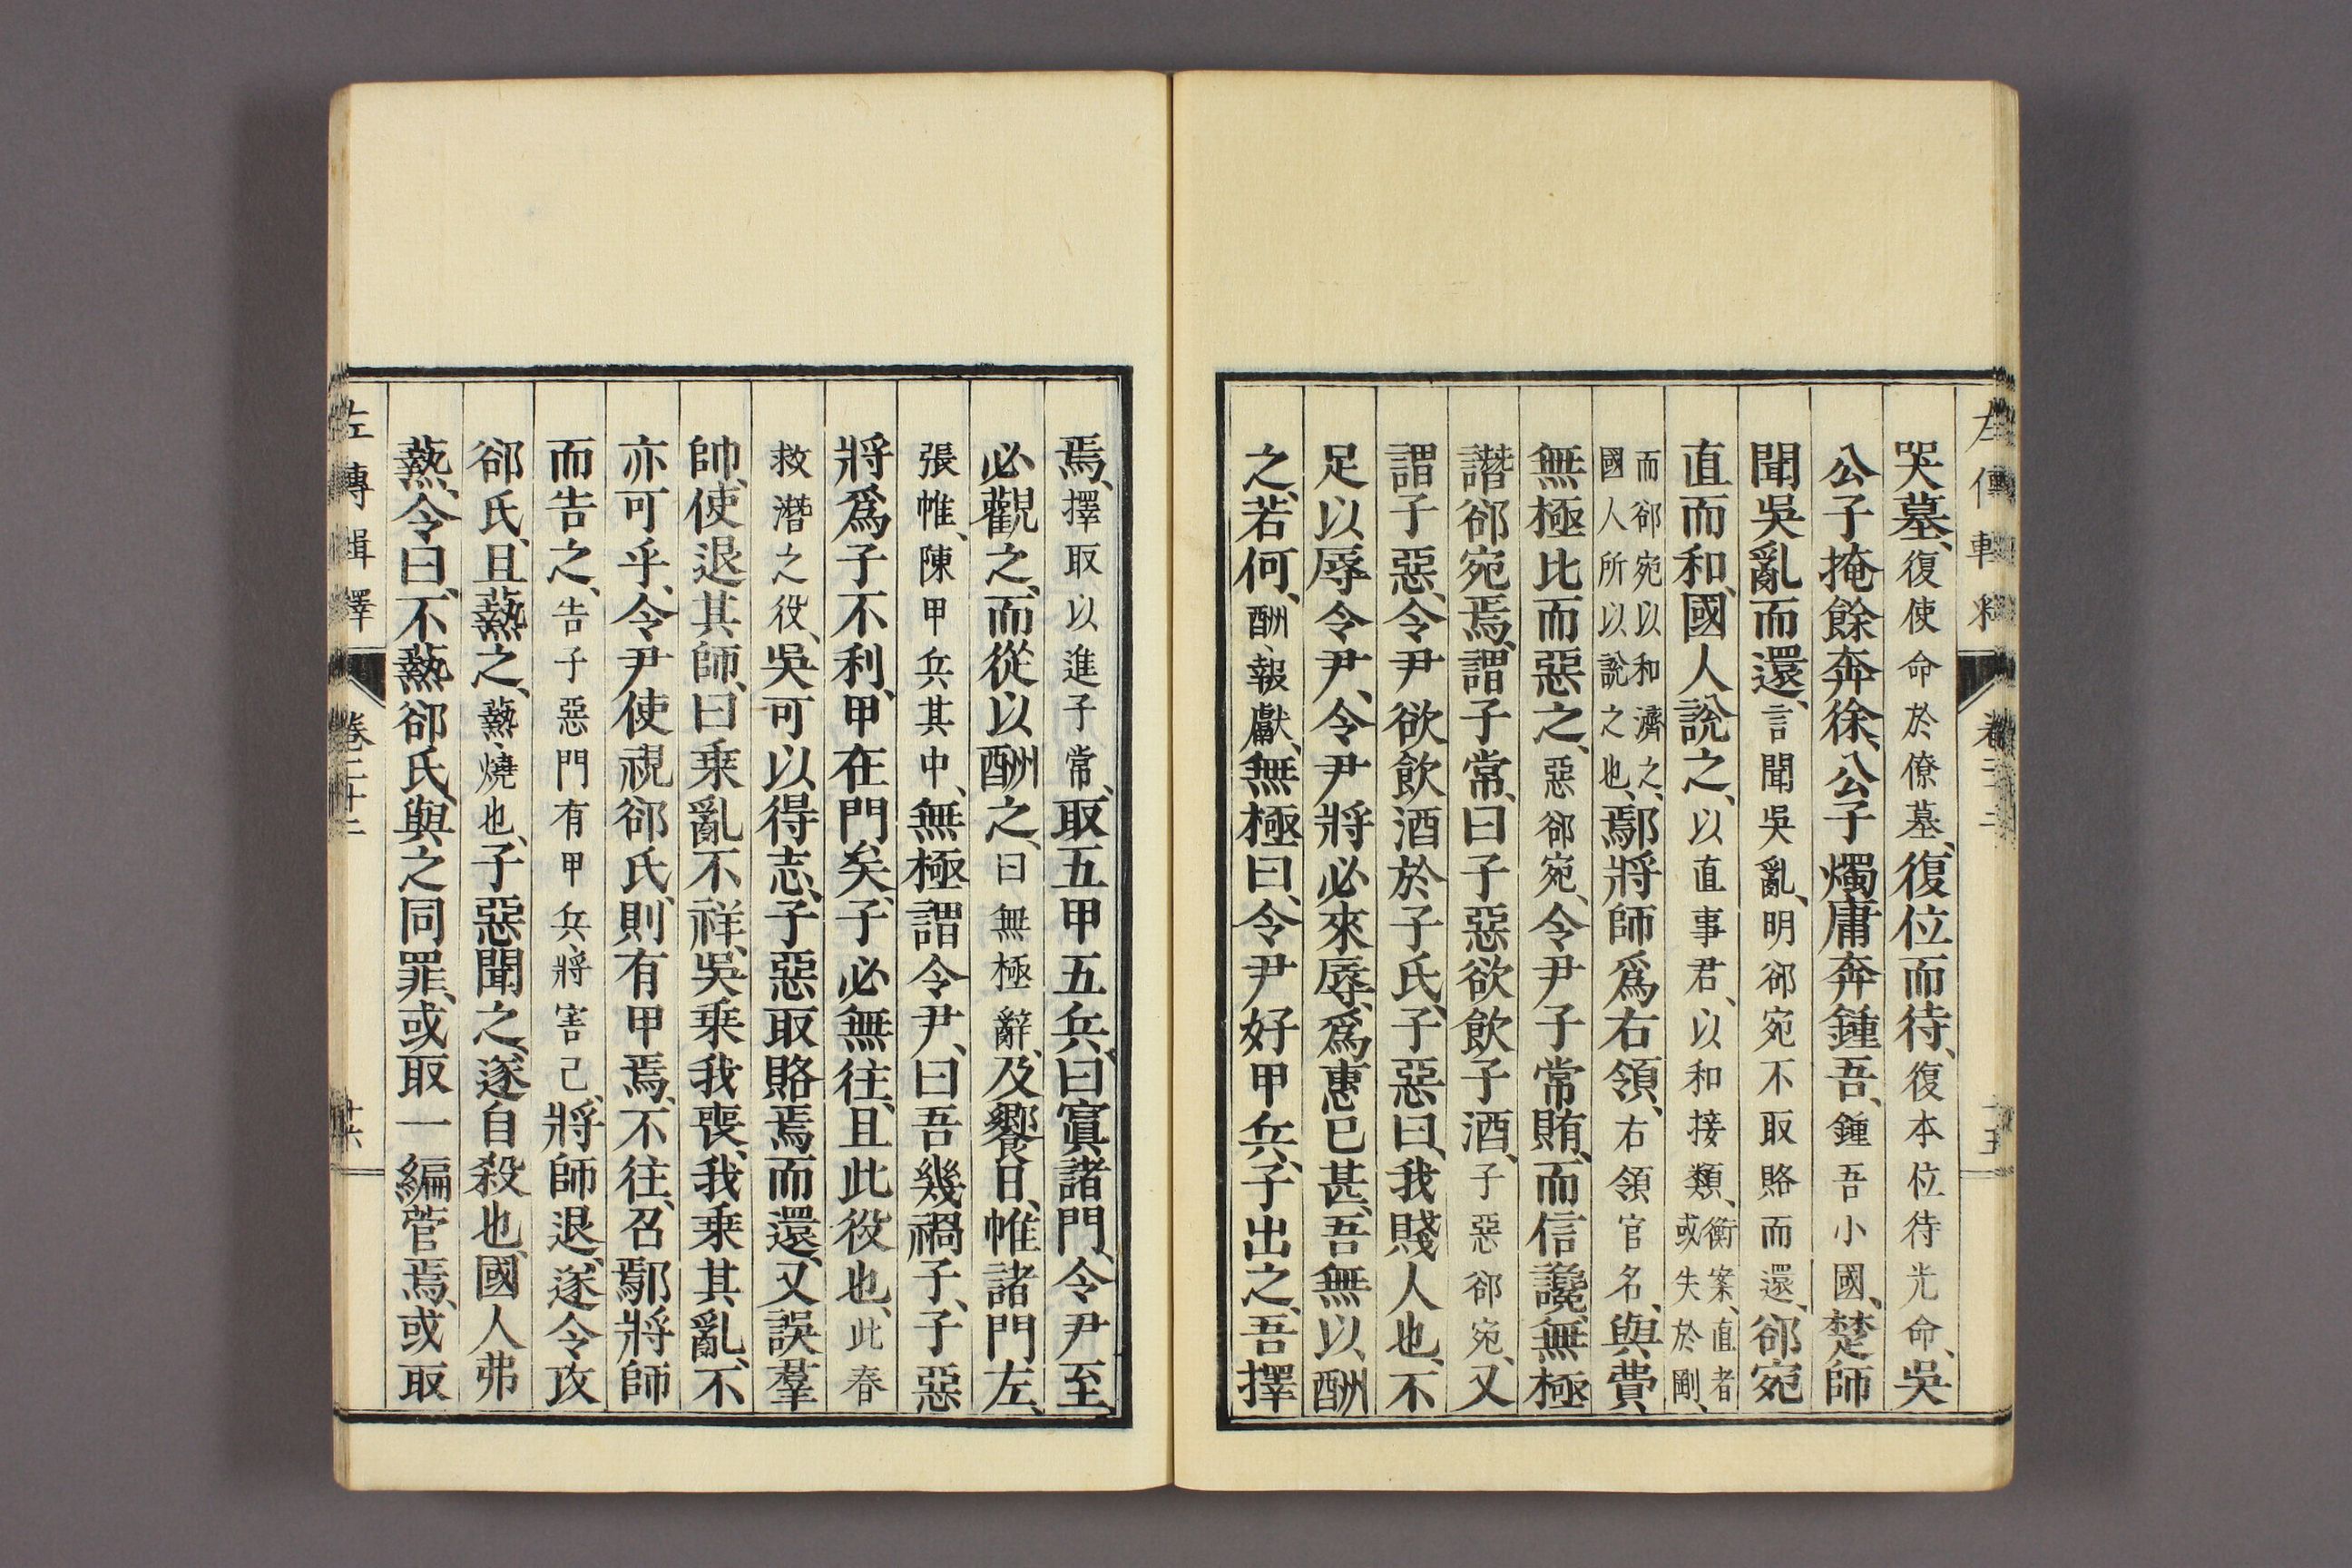 哭墓、復使命於僚墓、復位而待、復本位待光命、吳
公子掩餘奔徐、公子燭庸奔鍾吾、鍾吾小國、楚師
聞吳亂而還、言聞吳亂、明郤宛不取賂而還、郤宛
直而和、國人說之、以直事君、以和接類、衡案、直者或失於剛、
而郤宛以和濟之、國人所以說之也、鄢將師爲右領、右領官名、與費
無極比而惡之、惡郤宛、令尹子常賄、而信讒、無極
譖郤宛焉、謂子常、曰子惡欲飮子酒、子惡郤宛、又
謂子惡、令尹欲飮酒於子氏、子惡曰、我賤人也、不
足以辱令尹、令尹將必來辱、爲惠已甚、吾無以酬
之、若何、酬、報獻、無極曰、令尹好甲兵、子出之、吾擇
焉、擇取以進子常、取五甲五兵、曰寘諸門、令尹至
必觀之、而從以酬之、曰無極辭、及饗日、帷諸門左、
張帷、陳甲兵其中、無極謂令尹、曰吾幾禍子、子惡
將爲子不利、甲在門矣、子必無往、且此役也、此春
救潛之役、吳可以得志、子惡取賂焉而還、又誤羣
帥、使退其師、曰乘亂不祥、吳乘我喪、我乘其亂、不
亦可乎、令尹使視郤氏、則有甲焉、不往、召鄢將師
而告之、告子惡門有甲兵、將害己、將師退、遂令攻
郤氏、且爇之、爇、燒也、子惡聞之、遂自殺也、國人弗
爇、令曰、不爇郤氏、與之同罪、或取一編菅焉、或取
左傳輯釋 卷二十二 十六